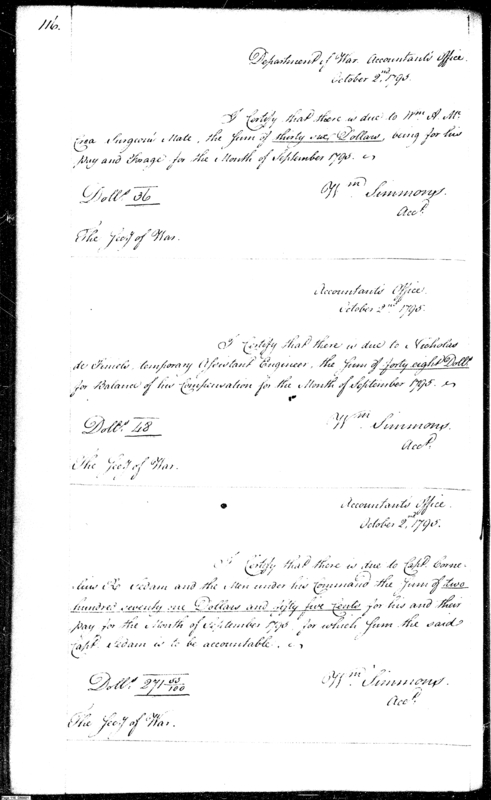 116.
Department of War. Accountant's Office.
October 2nd. 1795.
I Certify that there is due to Wm. A. Mc.
Crea Surgeon's Mate, the Sum of thirty six Dollars, being for his
pay and forage for the Month of September 1795.
Dolls. 36
Wm. Simmons.
Acct.
The Secy. of War.
Accountant's Office.
October 2nd. 1795.
I Certify that there is due to Nicholas
de Finiels temporary Assistant Engineer, the Sum of forty eight Dolls.
for Balance of his Compensation for the Month of September 1795.
Dolls. 48
Wm. Simmons.
Acct.
The Secy. of War.
Accountant's Office.
October 2nd. 1795.
I Certify that there is due to Capt. Corne-
lius R. Sedam and the Men under his Command the Sum of two
hundred seventy one Dollars and fifty five Cents for his and their
pay for the Month of September 1795 for which Sum the said
Capt. Sedam is to be accountable.
Dolls. 271 55/100
Wm. Simmons.
Acct.
The Secy. of War.